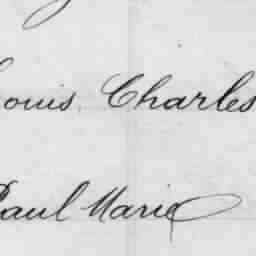 Louis Charles
Paul Marie